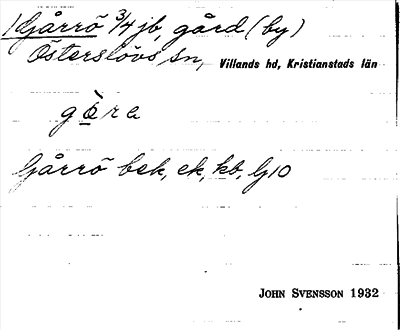 1 Gårrö 3/4 jb, gård (by)
Österslövs sn, Villands hd, Kristianstads län
gò̱ra
Gårrö bek, ek, kb, Gj10
JOHN SVENSSON 1932